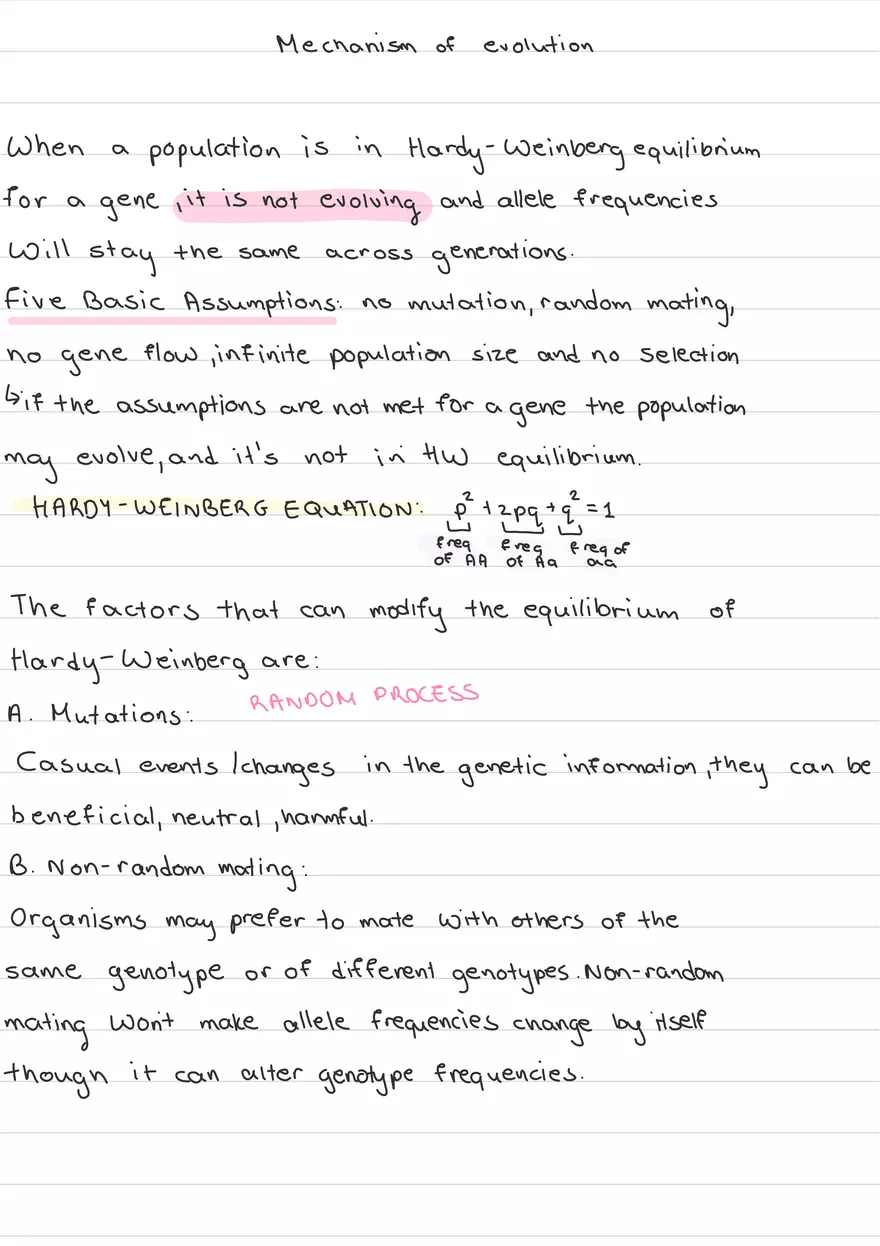 Mechanism of evolution
When a population is in Hardy-Weinberg equilibrium
for a gene, it is not evolving and allele frequencies
will stay the same across generations.
Five Basic Assumptions: no mutation, random mating,
no gene flow, infinite population size and no selection
↳if the assumptions are not met for a gene the population
may evolve, and it's not in HW equilibrium.
HARDY-WEINBERG EQUATION: p² + 2pq + q² = 1
freq of AA freq of Aa freq of aa
The factors that can modify the equilibrium of
Hardy-Weinberg are:
A. Mutations: RANDOM PROCESS
Casual events /changes in the genetic information, they can be
beneficial, neutral, harmful.
B. Non-random mating:
Organisms may prefer to mate with others of the
same genotype or of different genotypes. Non-random
mating won't make allele frequencies change by itself
though it can alter genotype frequencies.